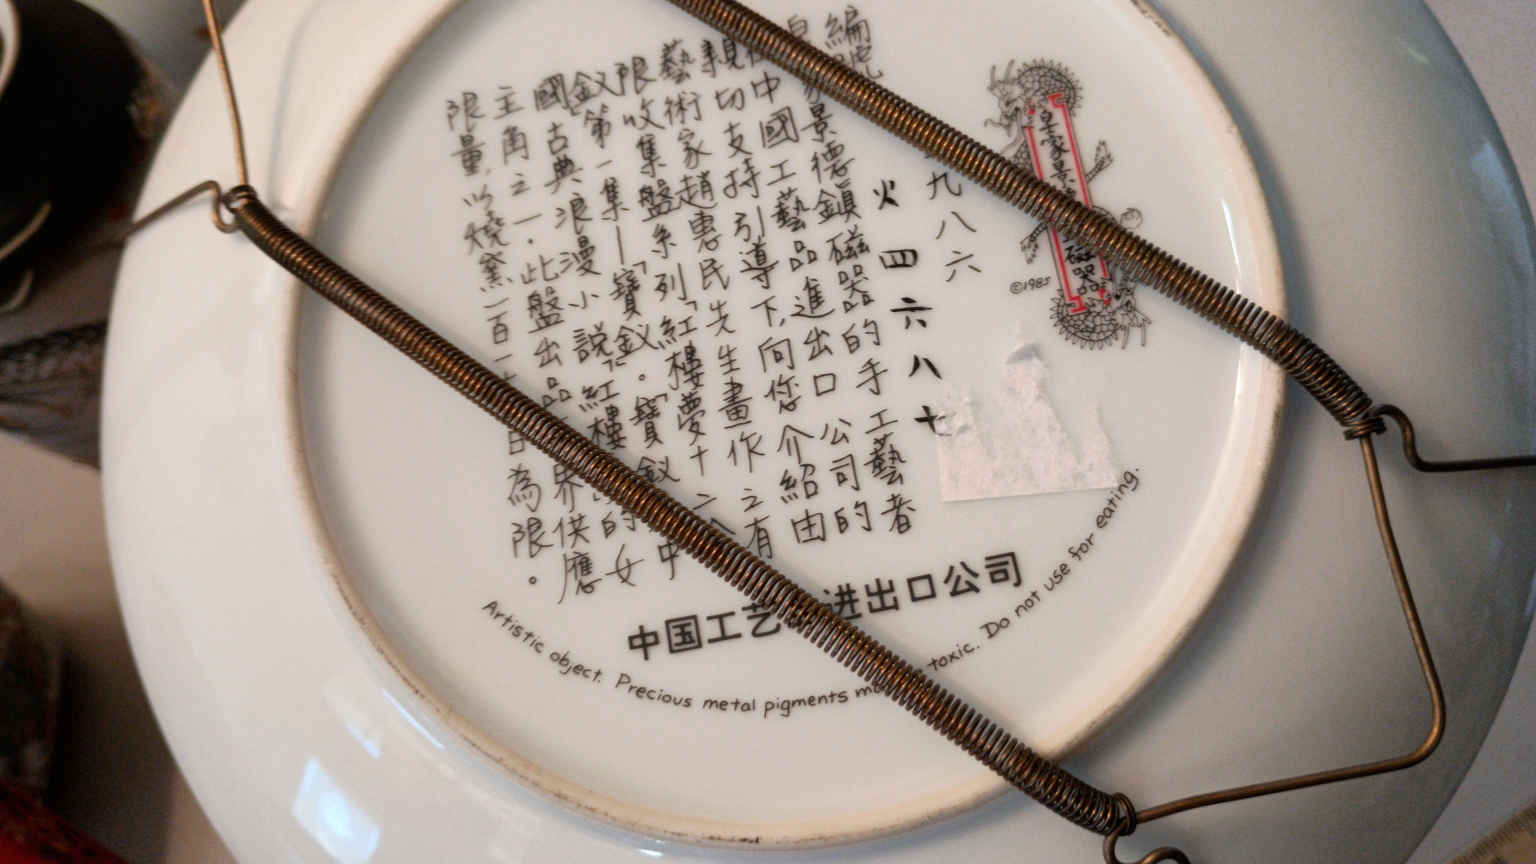 編號
火四六八七
九八六
景德鎮磁器的手工藝者
中國工藝品進出口公司的
親切支持引導下,向您介紹由
藝術家趙惠民先生畫作之有
限收集盤系列「紅樓夢十二
釵第一集—「寶釵」。「寶釵 中
國古典浪漫小說「紅樓 的女
主角之一。此盤出品 界供應
限量,以燒窯一百一 日為限。
皇家景 磁器
©1985
中国工艺 进出口公司
Artistic object. Precious metal pigments toxic. Do not use for eating.